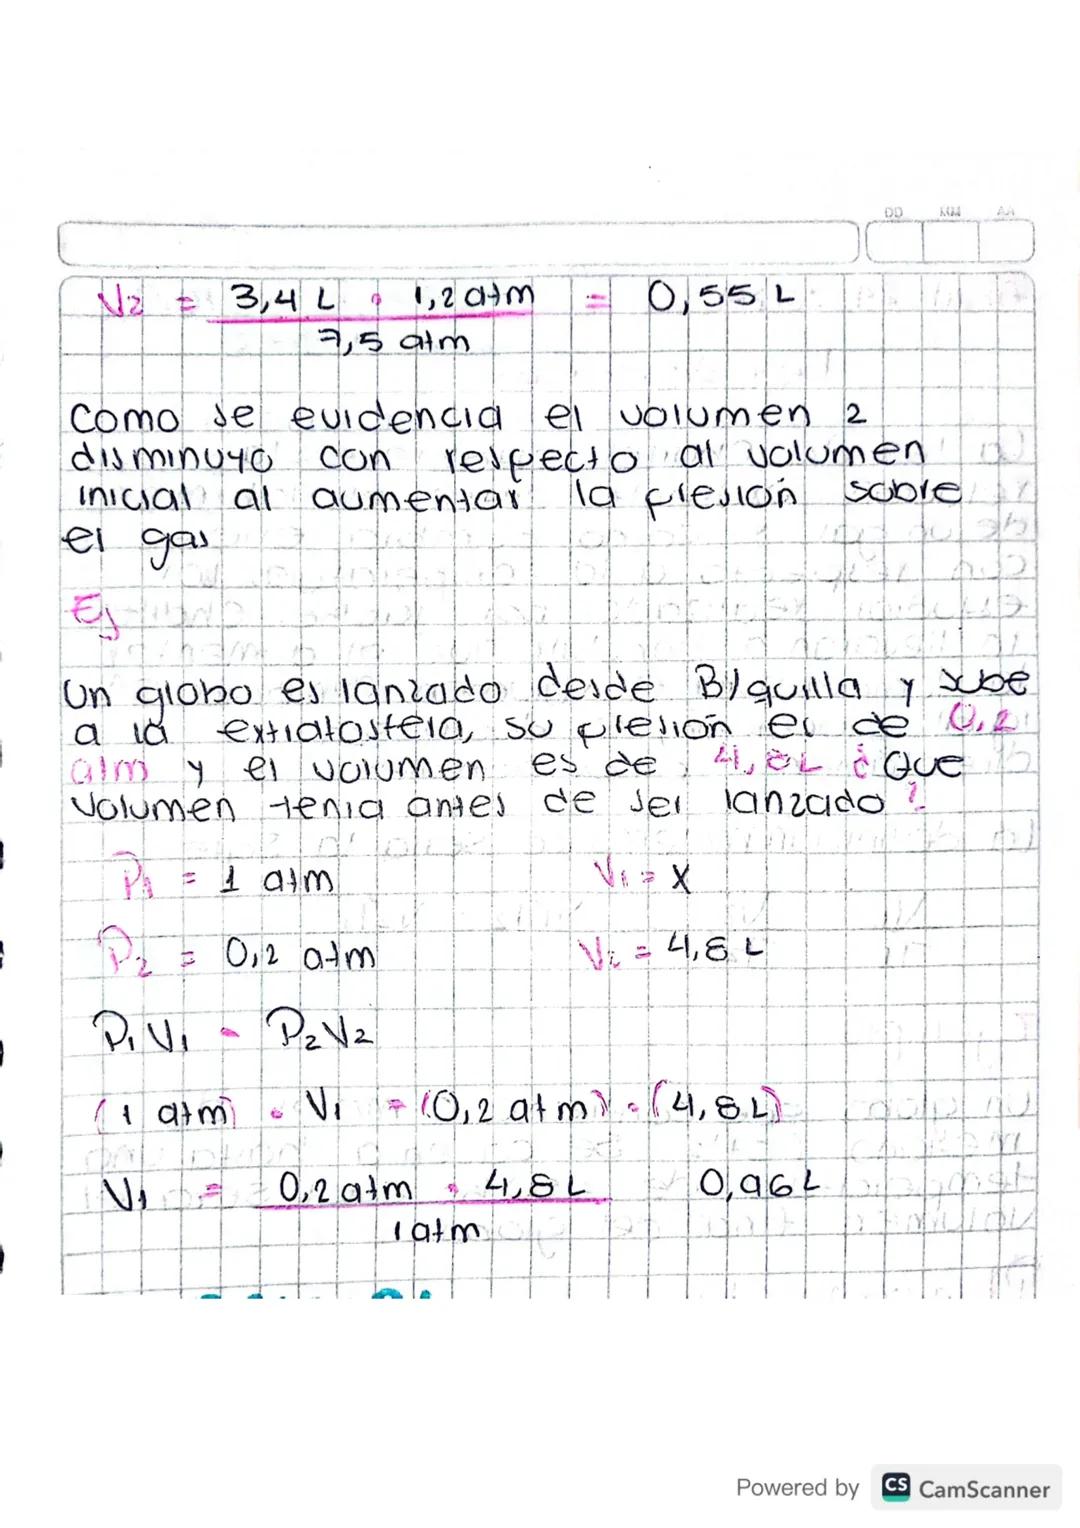 DD MM AA
V2 = 3,4 L • 1,2 atm = 0,55 L
7,5 atm
Como se evidencia el volumen 2
disminuyo con respecto al volumen
inicial al aumentar la presión sobre
el gas
Ej
Un globo es lanzado desde B/quilla y sube
a la extratosfera, su presión es de 0,2
atm y el volumen es de 4,8L ¿Que
volumen tenia antes de ser lanzado?
P1 = 1 atm V1 = X
P2 = 0,2 atm V2 = 4,8 L
P1 V1 = P2 V2
(1 atm) • V1 = (0,2 atm) • (4,8 L)
V1 = 0,2 atm • 4,8 L 0,96 L
1 atm
Powered by CS CamScanner